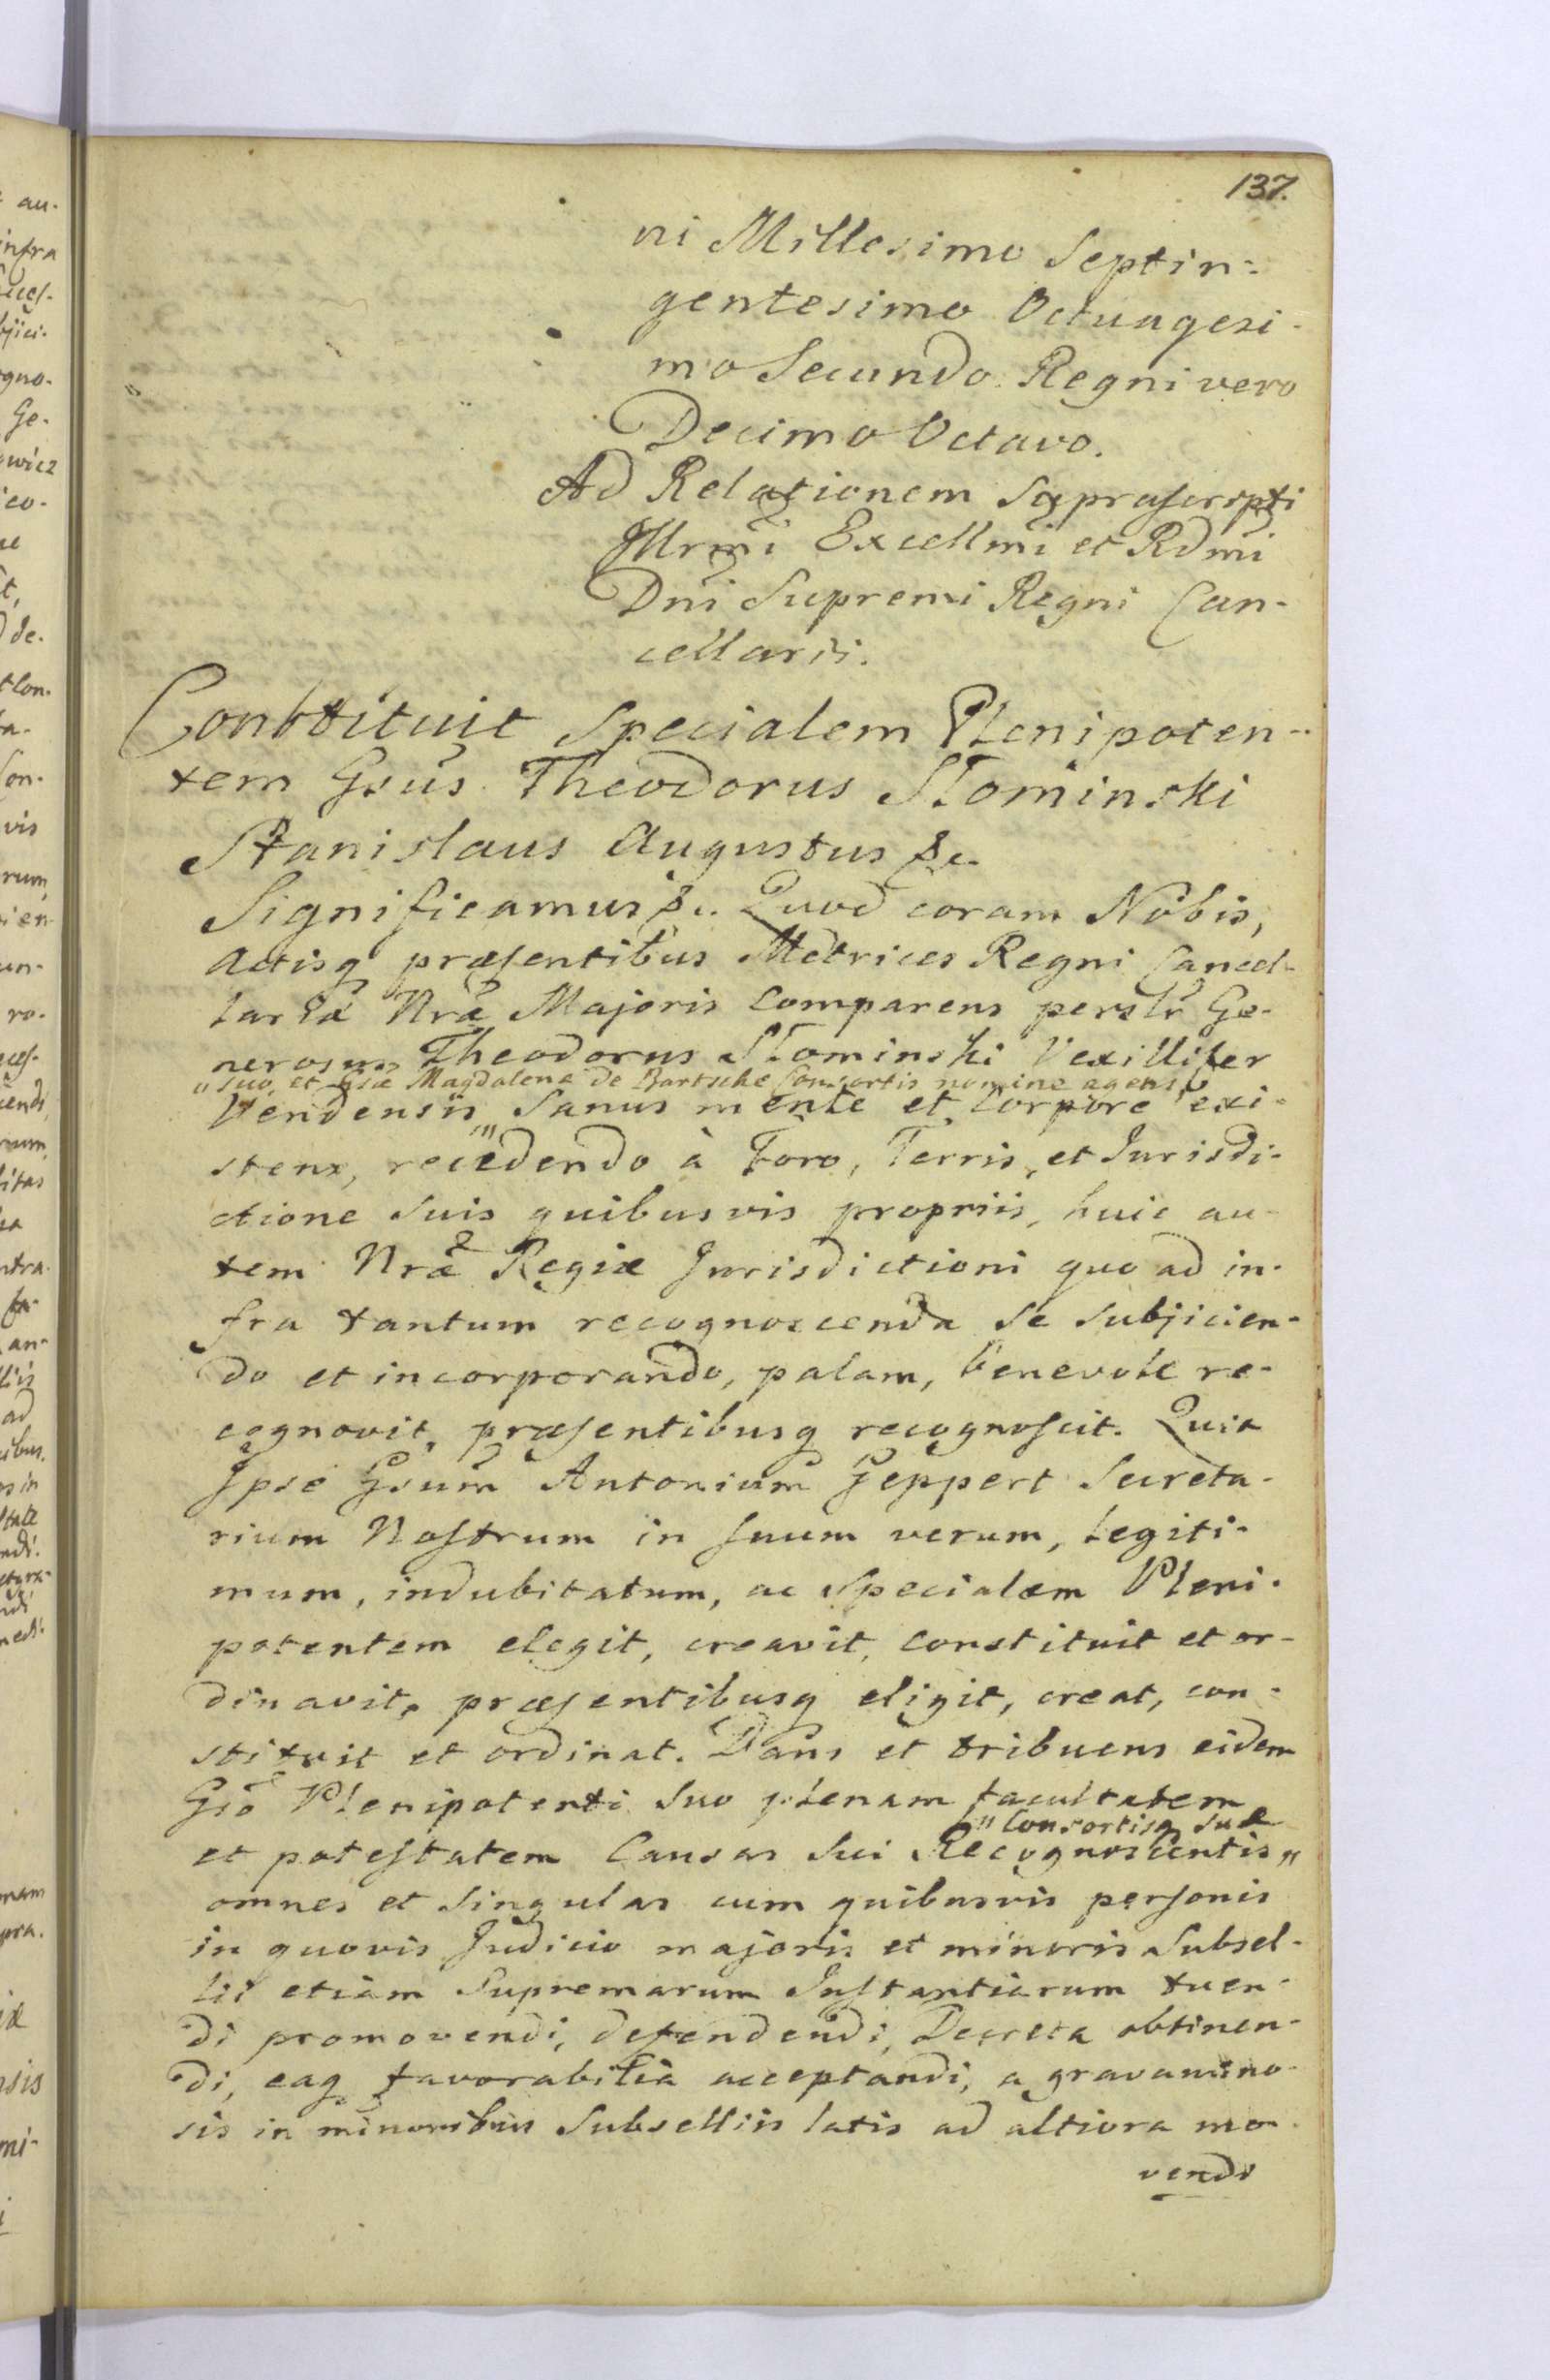 137.
ni Millesimo Septin-
gentesimo Octuagesi-
mo Secundo. Regni vero
Decimo Octavo.
Ad Relationem Supraſcripti
Illrmi Excellmi et Rdmi
Dni Supremi Regni Can-
cellarii.
Constituit Specialem Plenipoten-
tem Gsus Theodorus Słominski
Stanislaus Augustus &c.
Significamus &c. Quod coram Nobis,
Actisq præſentibus Metrices Regni Cancel-
lariæ Nræ Majoris Comparens perslr Ge-
nerosus Theodorus Słominski Vexillifer
"suo, et Gsæ Magdalenæ de Bartsche Consortis nomine agens"
Vendensis Sanus mente et Corpore exi-
stens, recedendo à Foro, Terris, et Jurisdi-
ctione Suis quibusvis propriis, huic au-
tem Nræ Regiæ Jurisdictioni quo ad in-
fra tantum recognoscenda se subjicien-
do et incorporando, palam, benevole re-
cognovit, præſentibusq recognoſcit. Quia
Ipse Gsum Antonium Geppert Secreta-
rium Noſtrum in ſuum verum, legiti-
mum, indubitatum, ac Specialem Pleni-
potentem elegit, creavit, constituit et or-
dinavit, præſentibusq eligit, creat, con-
stituit et ordinat. Dans et tribuens eidem
Gso Plenipotenti Suo plenam facultatem
" Consortisq suæ
et poteſtatem Causas Sui Recognoscentis "
omnes et Singulas cum quibusvis perſonis
in quovis Judicio majoris et minoris Subsel-
lii etiam Supremarum Inſtantiarum tuen-
di promovendi, defendendi, Decreta obtinen-
di, eaq favorabilia acceptandi, a gravamino-
sis in minoribus Subselliis latis ad altiora mo-
vendi